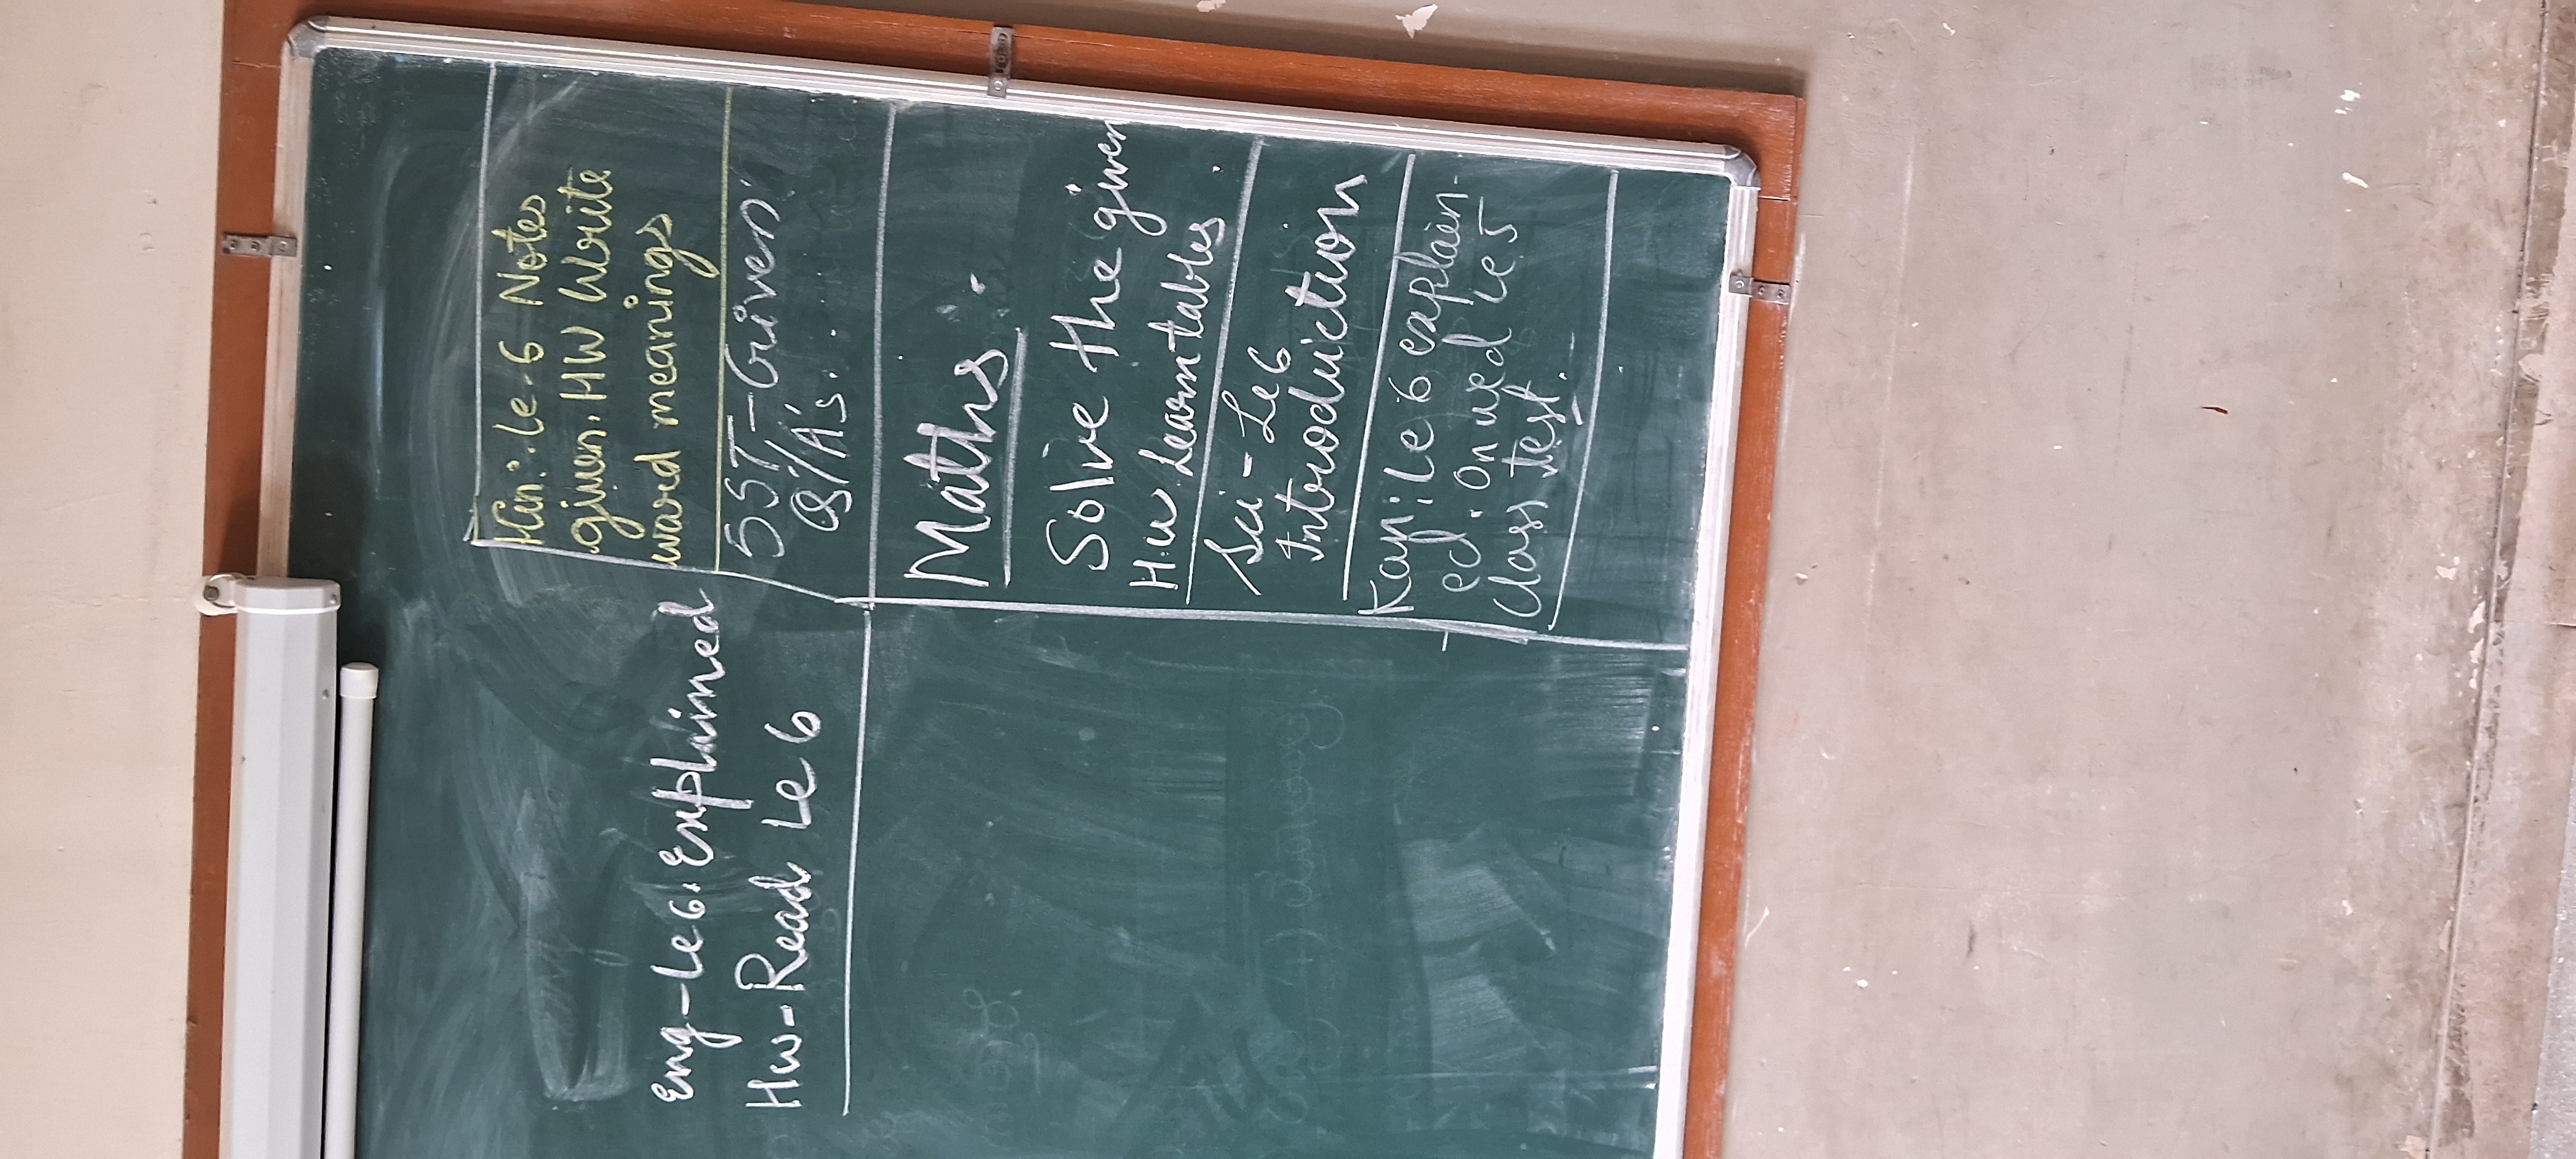 Eng-Le 6. Explained
Hw-Read Le 6
Hin:. Le-6 Notes
given. HW Write
word meanings
SST-Given
Q/A's.
Maths.
Solve the given
H.w Learn tables
Sci-Le 6
Introduction
Kan: Le 6 explain-
ed. On wed Le 5
Class test.